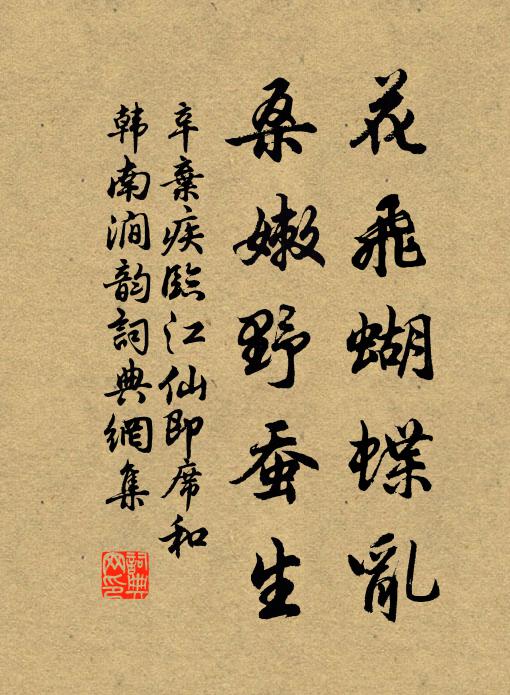 花飛蝴蝶亂
桑嫩野蚕生
辛棄疾臨江仙即席和
韩南澗韵詞典網集
詞典網印